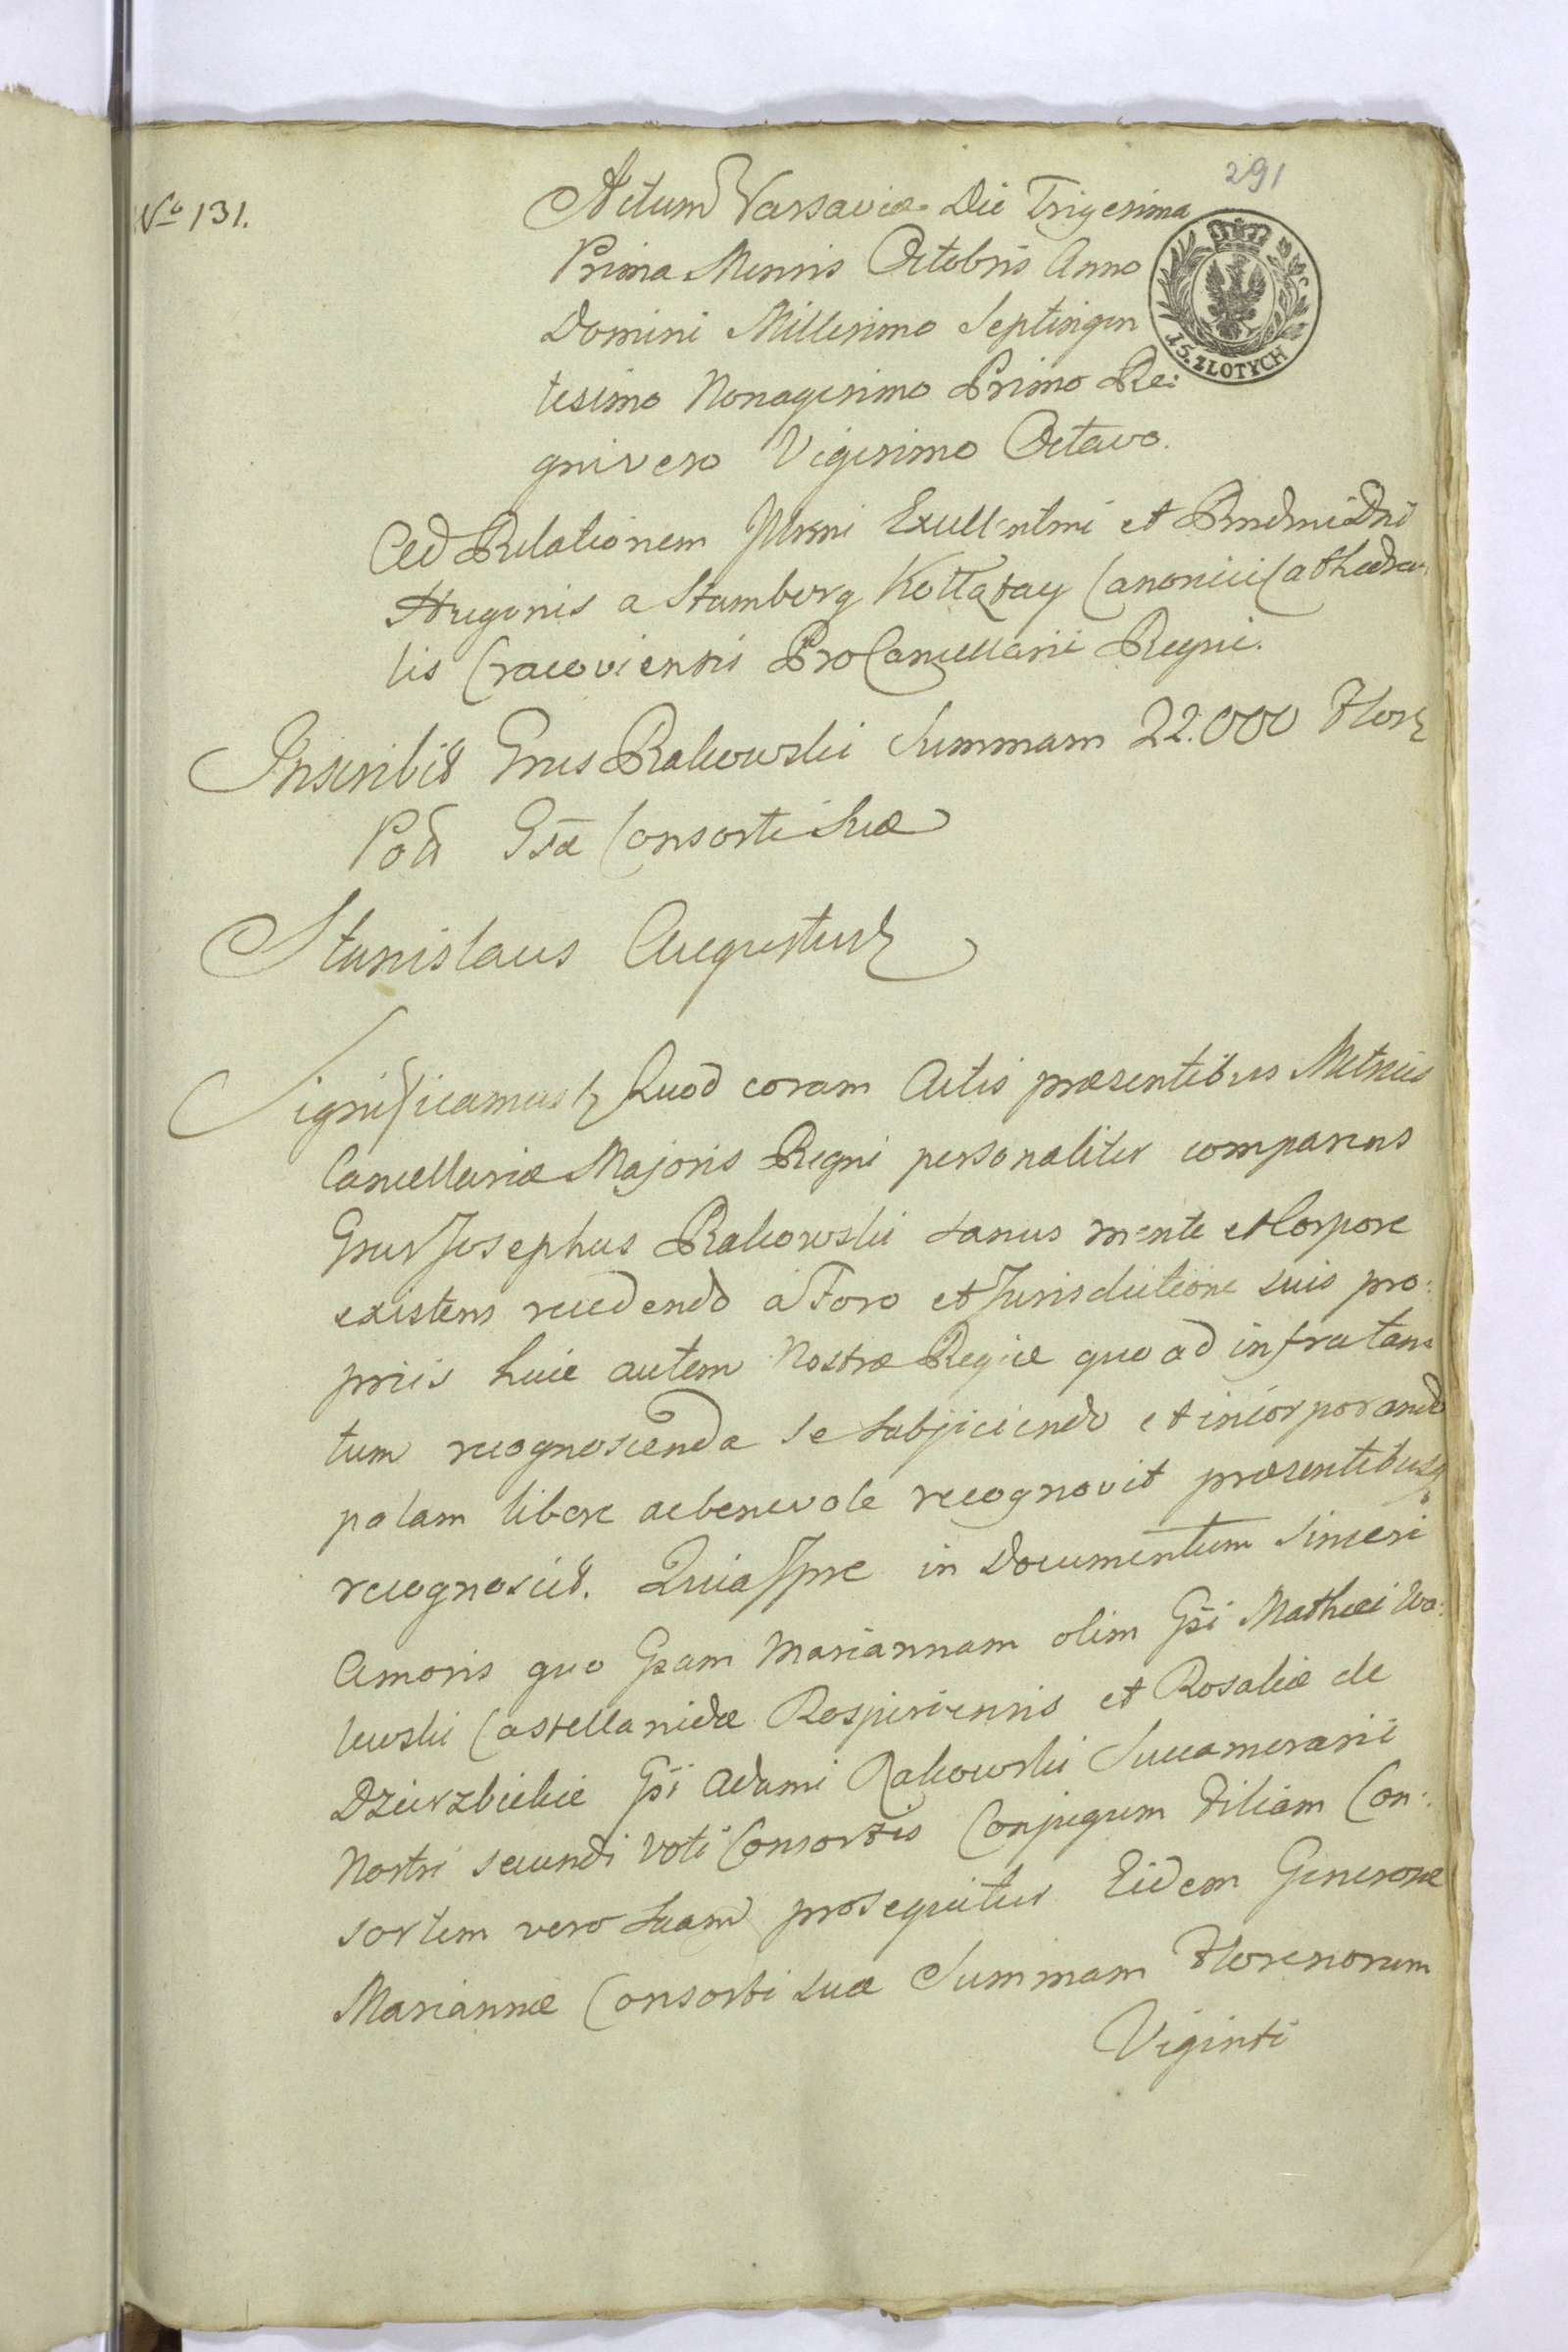 291
No 131.
Actum Varsaviæ Die Trigesima
Prima Mensis Octobris Anno
Domini Millesimo Septingen
tesimo Nonagesimo Primo Re:
gni vero Vigesimo Octavo.
15. ZŁOTYCH
Ad Relationem Illrmi Excellntmi et Rndmi Dni
Hugonis a Stumberg Kołłątay Canonici Cathedra:
lis Cracoviensis ProCancellarii Regni.
Inscribit Gnus Rakowski Summam 22.000 Flor
Pol Gsæ Consorti Suæ
Stanislaus Augustus
Significamus Quod coram Actis præsentibus Metrices
Cancellariæ Majoris Regni personaliter comparens
Gnus Josephus Rakowski sanus mente et Corpore
existens recedendo a Foro et Jurisdictione suis pro:
priis huic autem Nostræ Regiæ quo ad infra tan:
tum recognoscenda se subjiciendo et incorporando
palam libere ac benevole recognovit præsentibusq
recognoscit. Quia Ipse in Documentum Sinceri
Amoris quo Gsam Mariannam olim Gsi Mathei Wa:
lewski Castellanidæ Rospiriensis et Rosaliæ de
Dzierzbickie Gsi Adami Rakowski Succamerarii
Nostri secundi voti Consortis Conjugum Filiam Con:
sortem vero Suam prosequitur Eidem Generosæ
Mariannæ Consorti suæ Summam Florenorum
Viginti